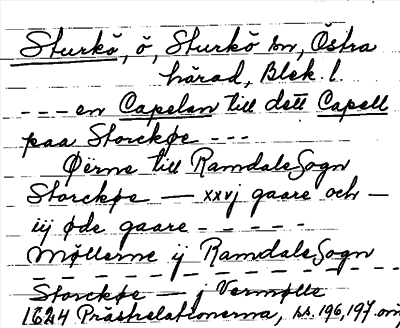 Sturkö, ö, Sturkö sn, Östra
härad, Blek. l.
--- en Capelan till dett Capell
paa Storckøe ---
Øerne till RamdaleSogn
Storckøe — xxvj gaare och —
iij øde gaare - - - - -
Møllerne ij RamdaleSogn
- - - - - - - - - - - -
Storckøe — j Vermølle
1624 Prästrelationerna, ss. 196, 197. orig